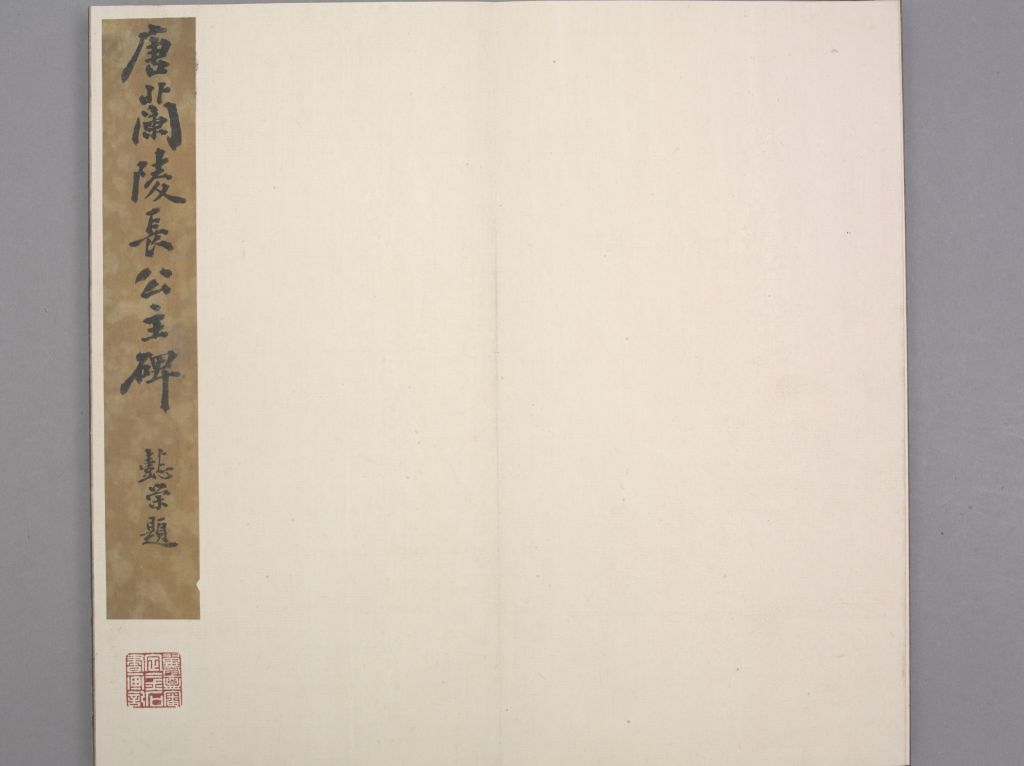 唐蘭陵長公主碑
懿榮題